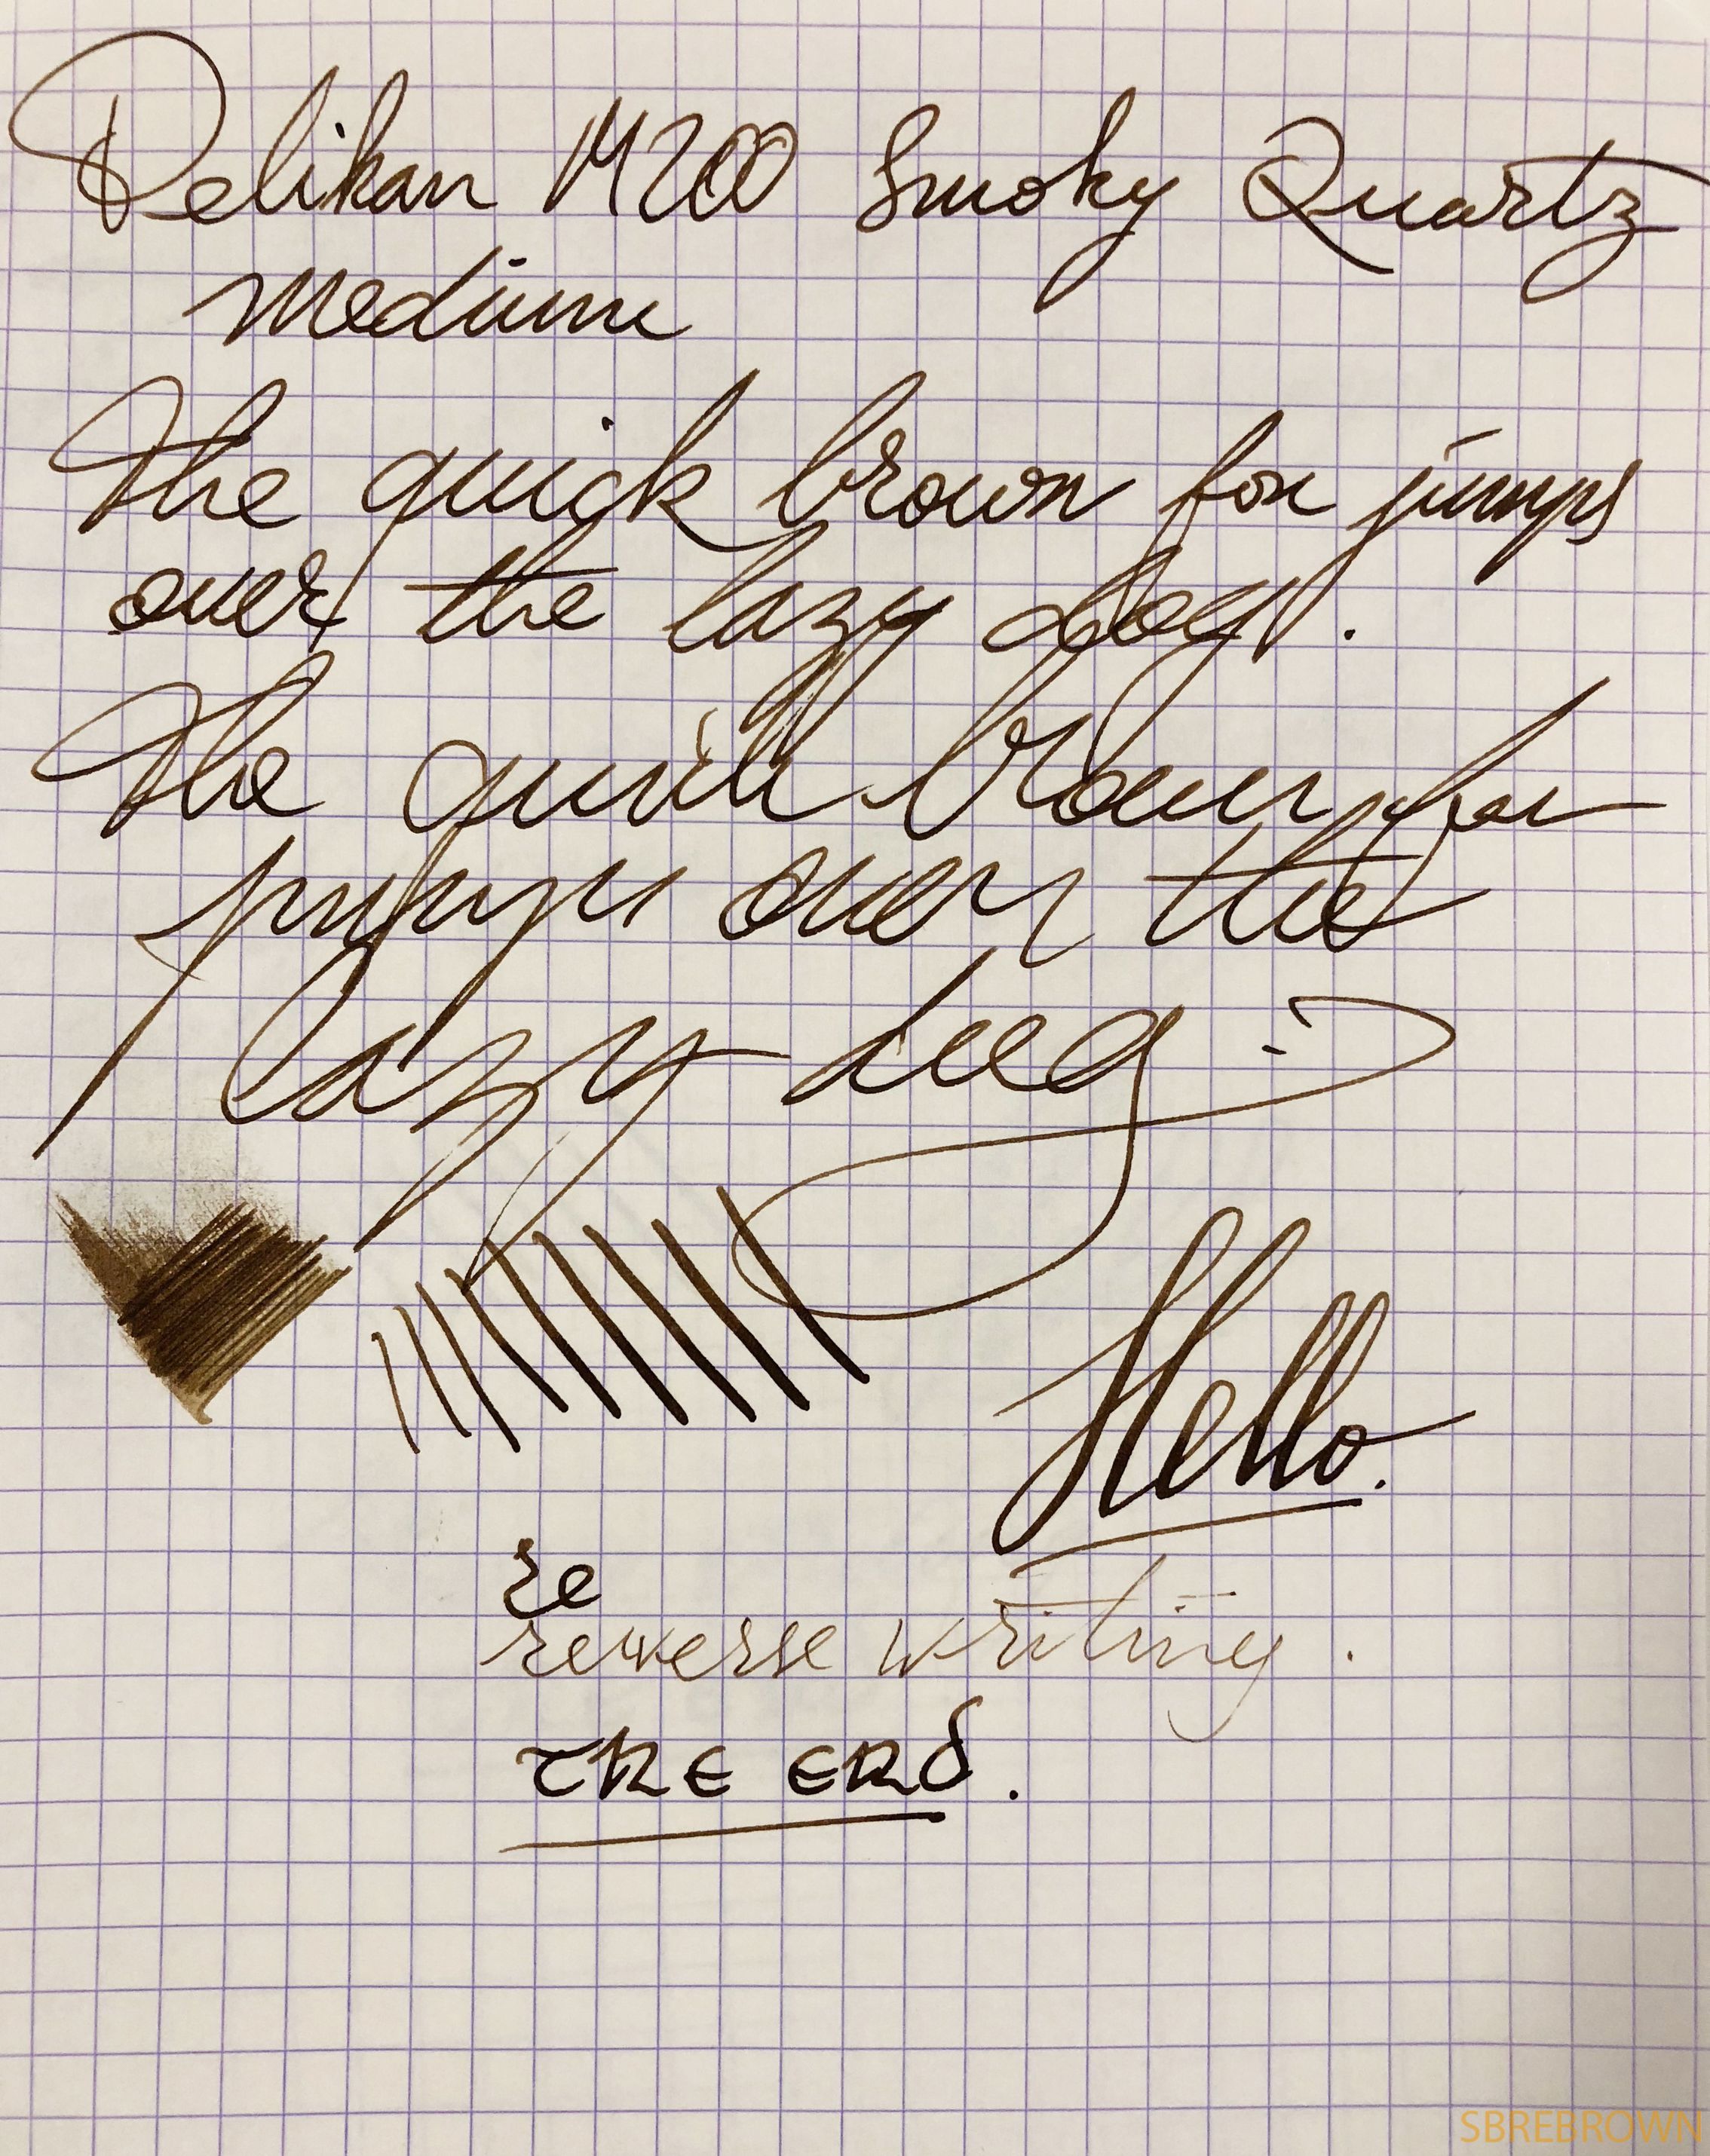 Pelikan M200 Smoky Quartz
medium
The quick brown fox jumps
over the lazy dog.
The quick brown fox
jumps over the
lazy dog :-)
Hello.
re
reverse writing.
THE END.
SBREBROWN